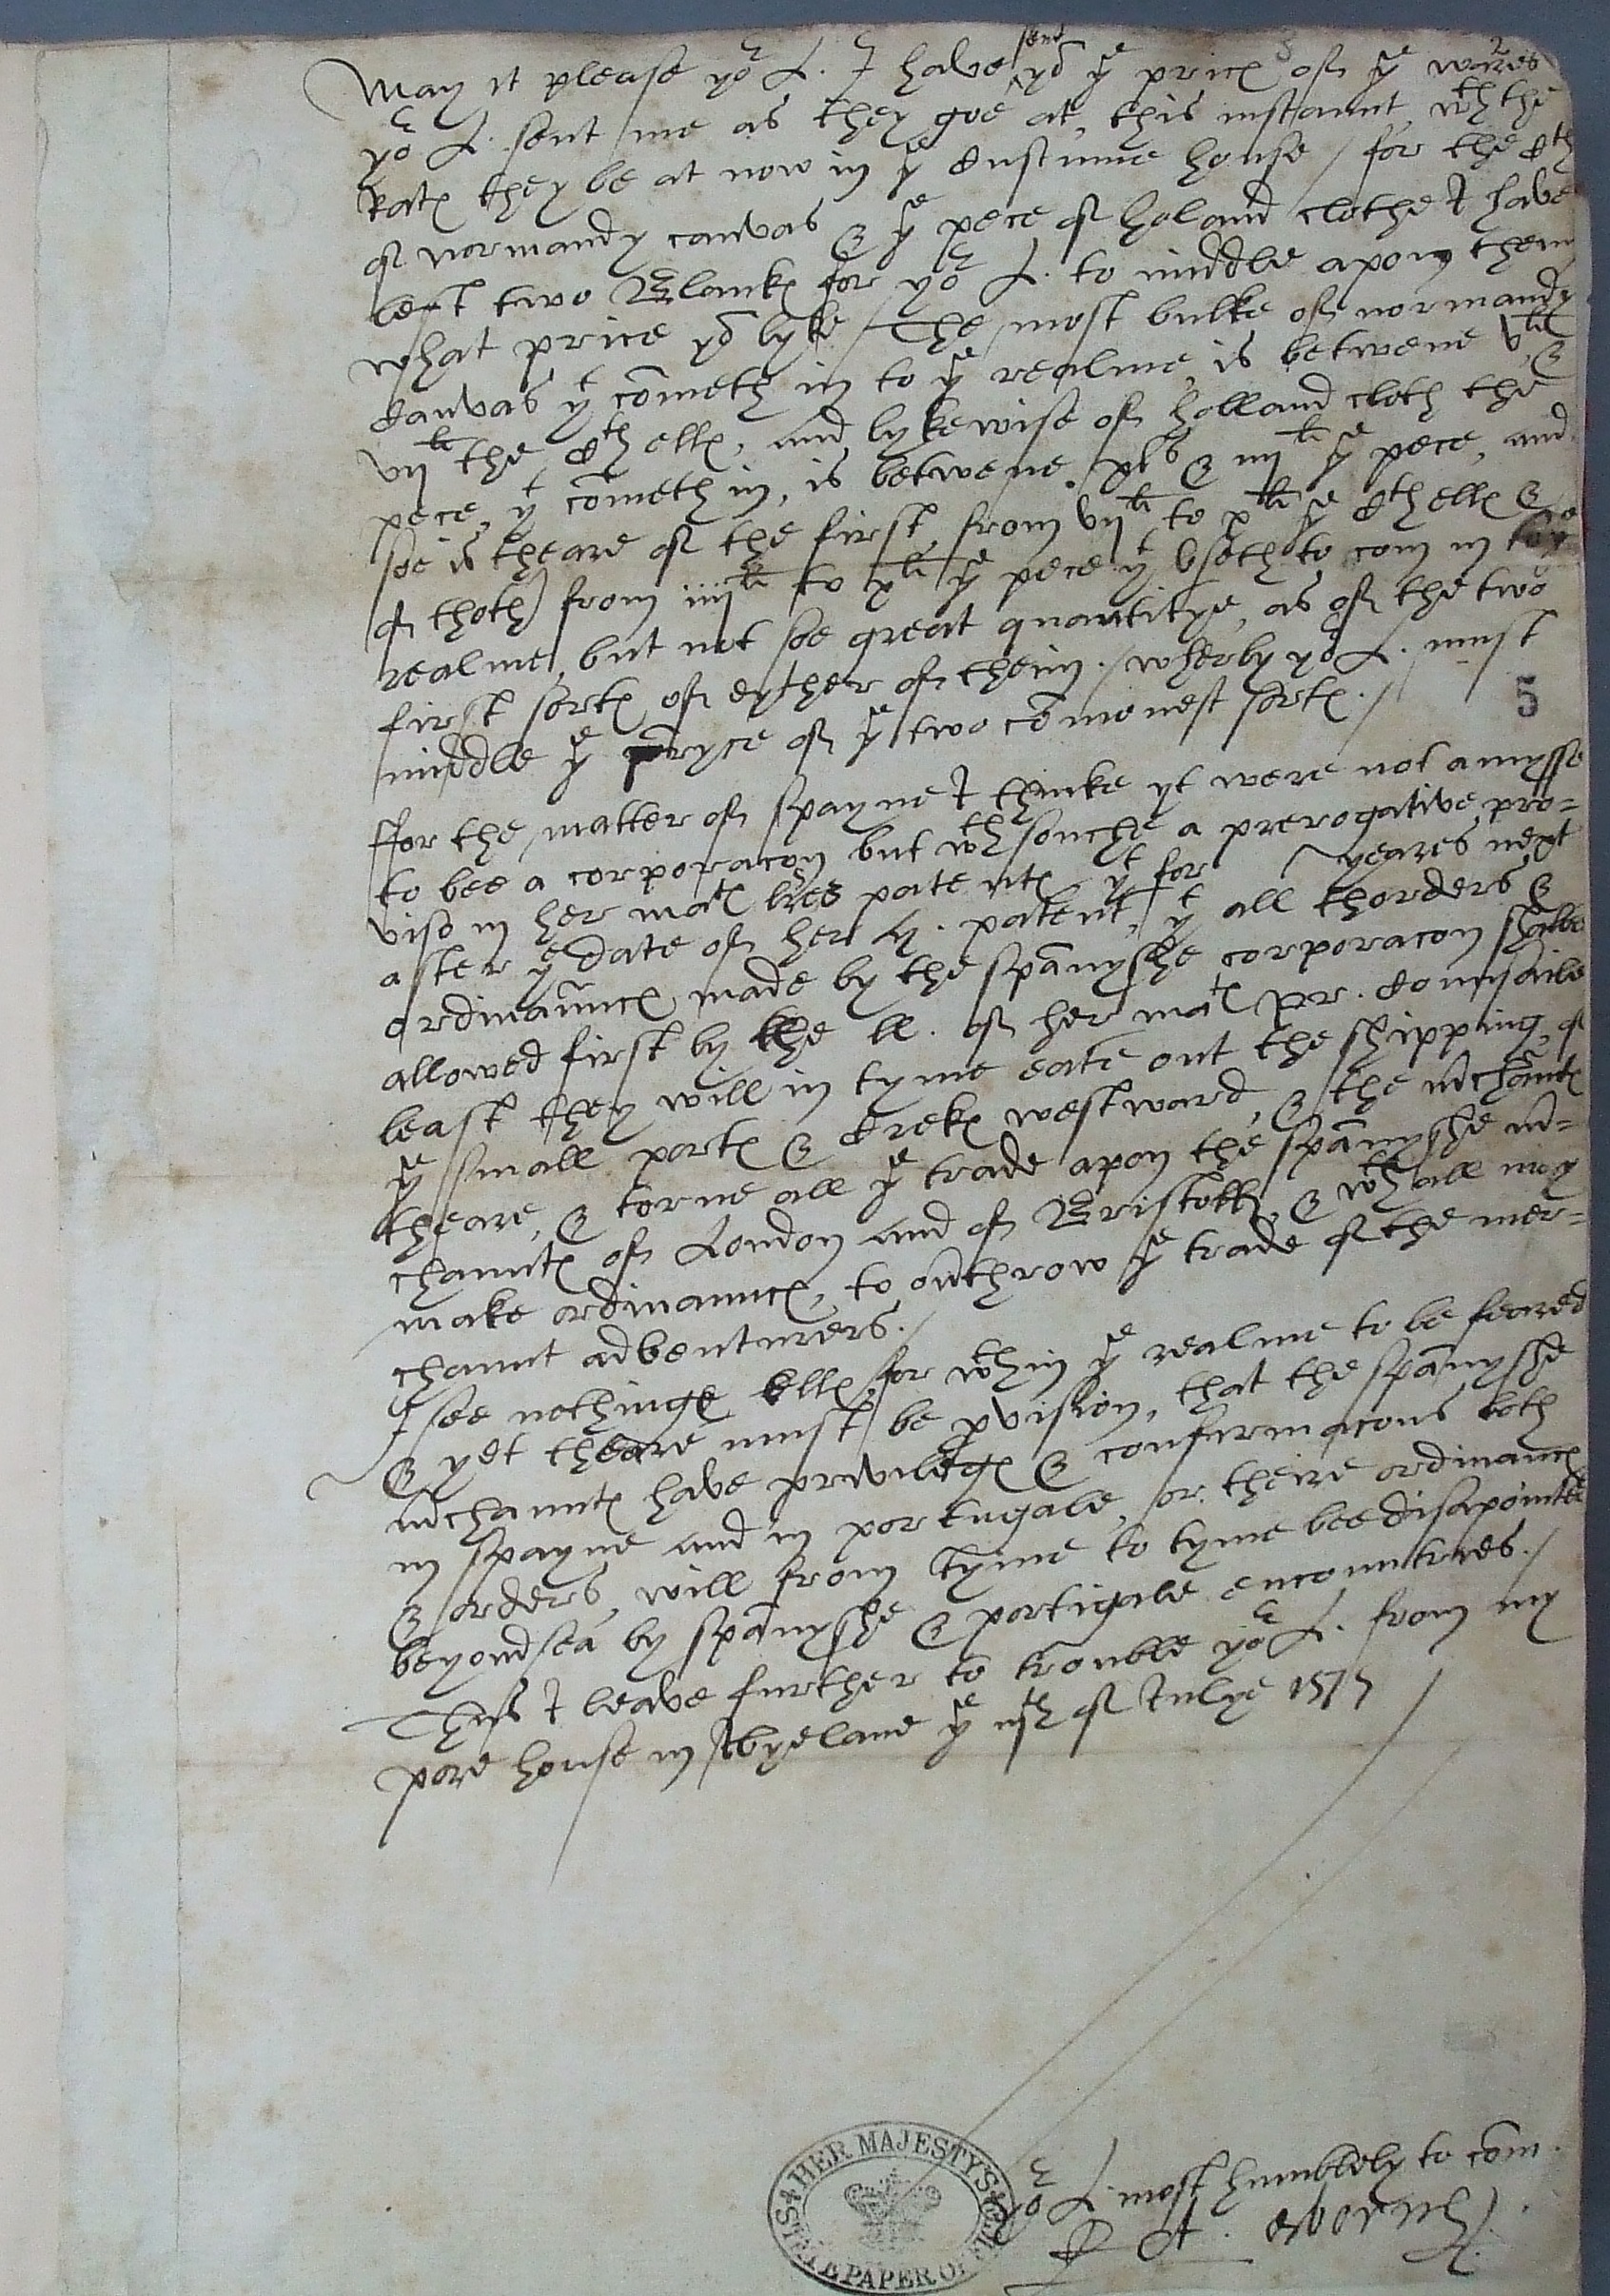 May it please yor L. I have sent yo ye prices of ye wares
yor L. sent me as they goe at this instaunt, wth the
rates they be at now in ye Custume house / for the Cth
of normandy canvas & ye pece of holand clothe I have
left two Blankes for yor L. to middle apon them
what price yo lyke / The most bulke of normandy
Canvas yt cometh in to ye realme, is betwene vli &
vijli the Cth elles, and lykewise of holland cloth the
pece yt cometh in, is betwene xls & iijli ye pece, and
soe is theare of the first from vijli to xli ye Cth elles &
of thoth from iiijli to xli ye pece yt useth to com in to ye
realme, but not soe great quantitye, as of the two
first sortes of eyther of theim. / wherby yor L. must
middle ye pryce of ye two comonest sortes. /
ffor the matter of Spayne I thinke yt were not amysse
to bee a corporacon but wth souche a prerogative, pro=
viso in her mates lres patentes yt for yeares next
after ye date of her h. patent, yt all thorders &
ordinaunces made by the spanyshe corporacon shalbe
allowed first by the ll. of her mates pr. Counsaile
least they will in tyme eate out the shipping, of
ye small portes & Crekes westward, & the mchantes
theare, & torne all ye trade apon the spanyshe m=
chauntes of London and of Bristoll, & wthall may
make ordinaunces, to overthrow ye trade of the mer=
chaunt adventurers. /
I see nothinge elles for wthin ye realme to be feared
& yet theare must be pvision, that the spanyshe
mchauntes have privileges & confirmacons both
in spayne and in portugale, or theire ordinances
& orders, will from tyme to tyme bee disapointed
beyond sea by spanyshe & portigale encountries. /
Thus I leave further to trouble yor L. from my
pore house in the of Julye 1577
5
yor L. most humblely to com.
HER MAJESTY'S STATE PAPER OFFICE